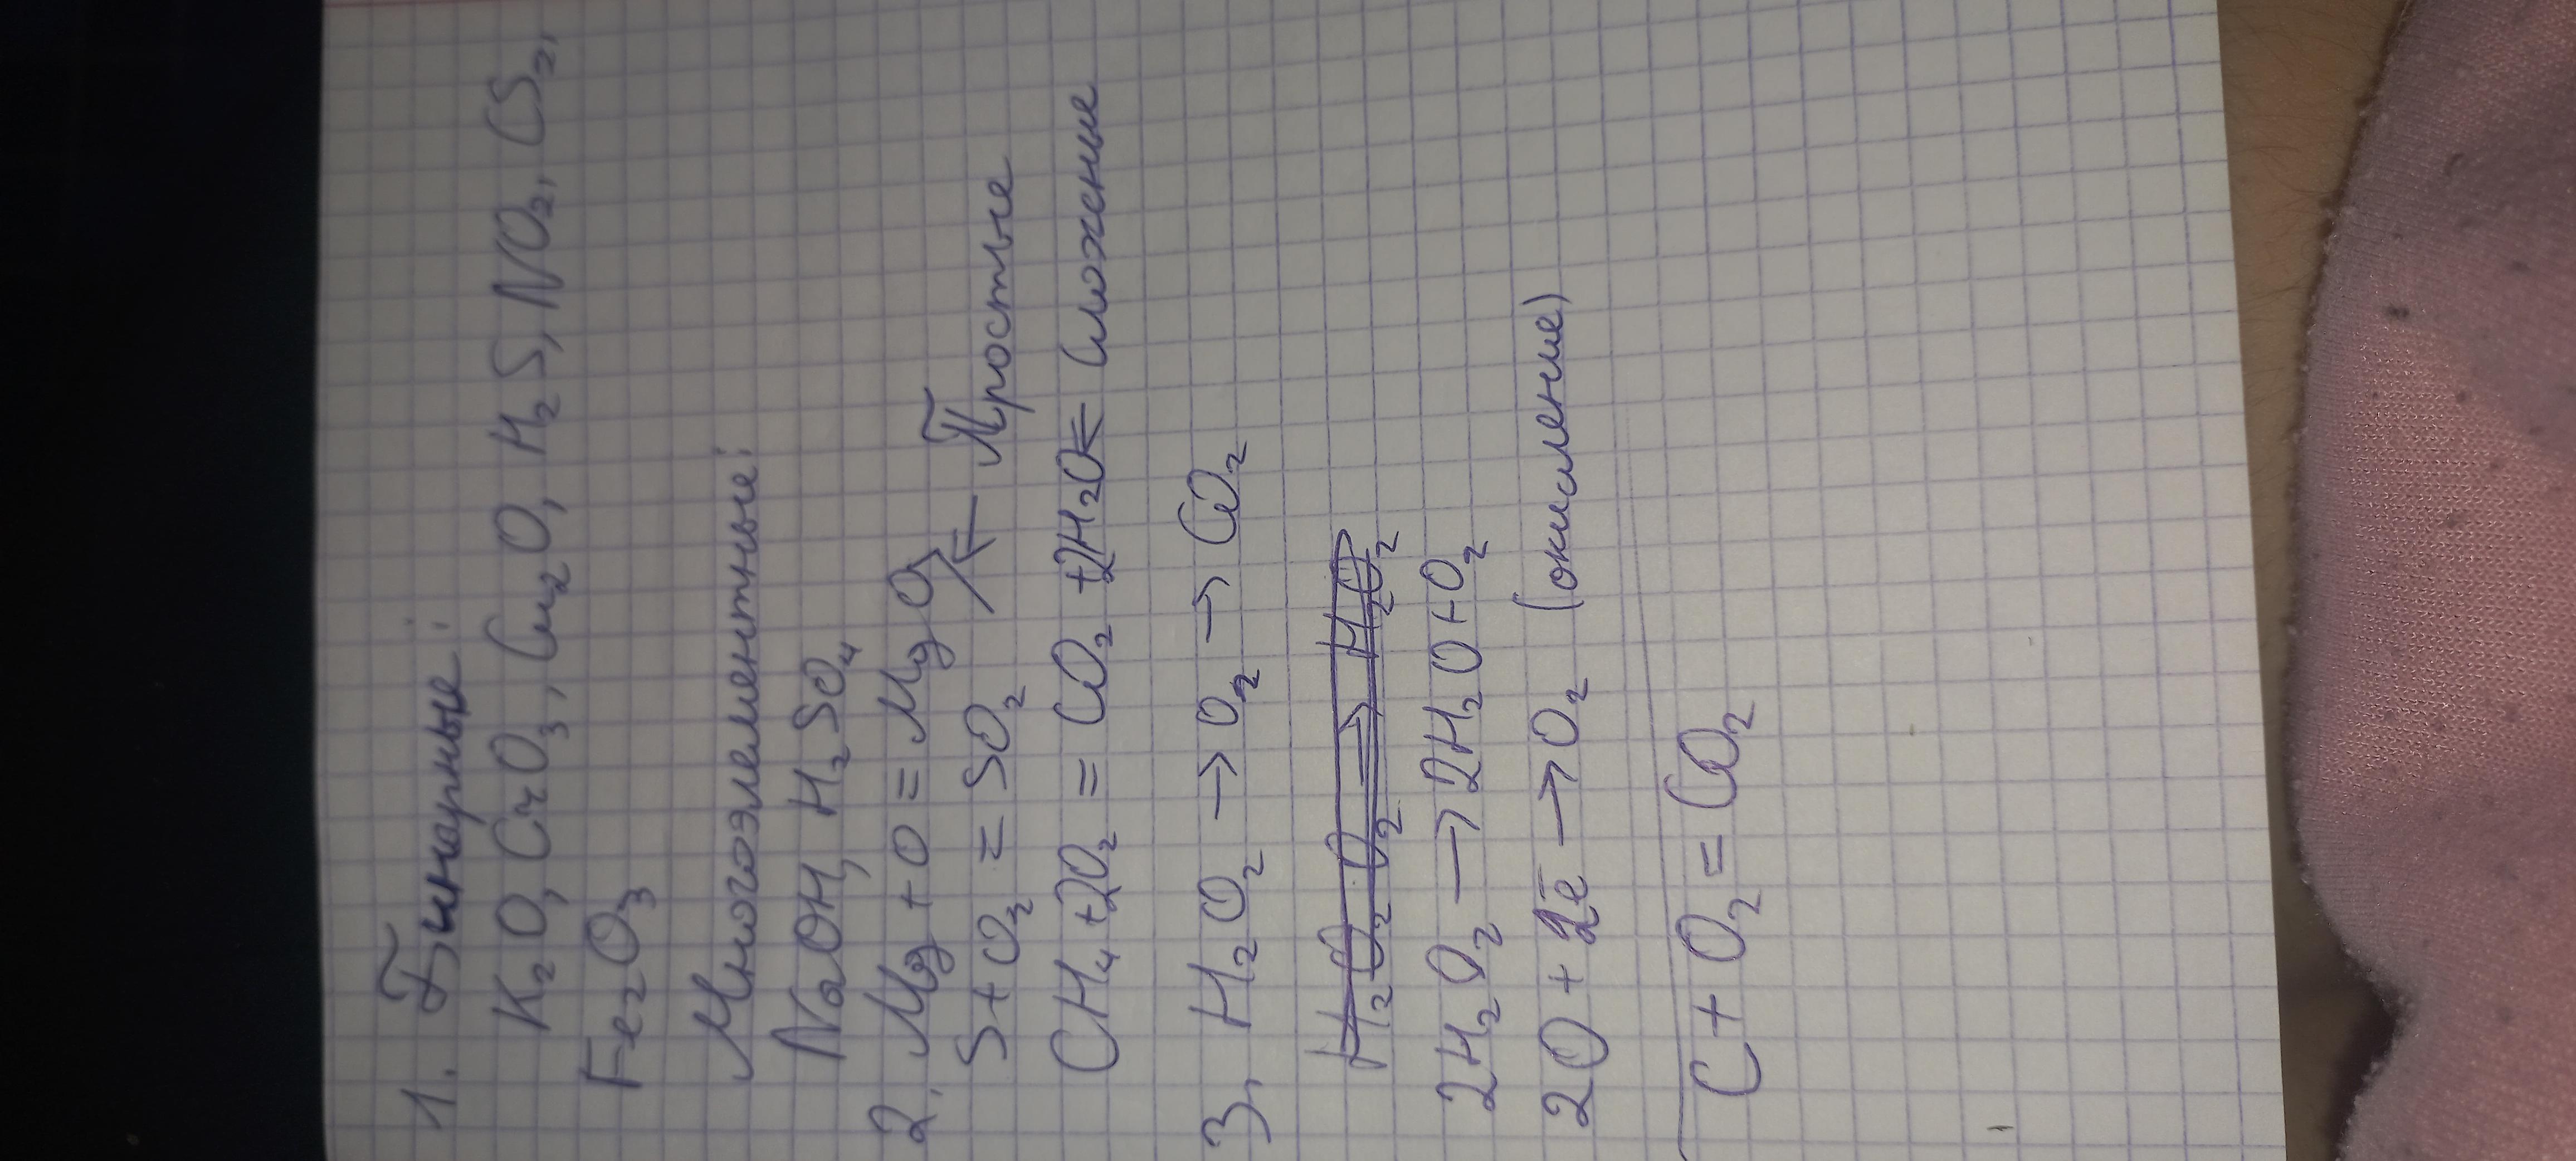 1. Бинарные:
K₂O, CrO₃, Cu₂O, H₂S, NO₂, CS₂,
Fe₂O₃
Многоэлементные:
NaOH, H₂SO₄
2. Mg + O = MgO
S + O₂ = SO₂ ← Простые
CH₄ + 2O₂ = CO₂ + 2H₂O ← Сложенные
3, H₂O₂ → O₂ → CO₂
2H₂O₂ → 2H₂O + O₂
2O + 2ē → O₂ (окисление)
C + O₂ = CO₂